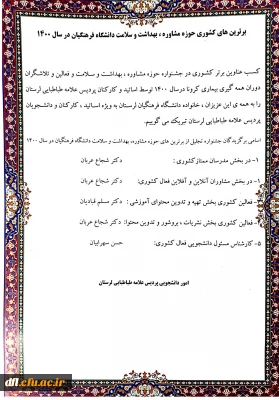 برترین های کشوری حوزه مشاوره ، بهداشت و سلامت دانشگاه فرهنگیان در سال ۱۴۰۰
کسب عناوین برتر کشوری در جشنواره حوزه مشاوره ، بهداشت و سلامت و فعالین و تلاشگران
دوران همه گیری بیماری کرونا درسال ۱۴۰۰ توسط اساتید و کارکنان پردیس علامه طباطبایی لرستان
را به همه ی این عزیزان ، خانواده دانشگاه فرهنگیان لرستان به ویژه اساتید ، کارکنان و دانشجویان
پردیس علامه طباطبایی لرستان تبریک می گوییم.
اسامی برگزیدگان جشنواره تجلیل از برترین های حوزه مشاوره، بهداشت و سلامت دانشگاه فرهنگیان در سال ۱۴۰۰
۱- در بخش مدرسان ممتاز کشوری : دکتر شجاع عربان
۲- در بخش مشاوران آنلاین و آفلاین فعال کشوری: دکتر شجاع عربان
۳- فعالین کشوری بخش تهیه و تدوین محتوای آموزشی : دکتر مسلم قبادیان
۴- فعالین کشوری بخش نشریات ، بروشور و تدوین محتوا: دکتر شجاع عربان
۵- کارشناس مسئول دانشجویی فعال کشوری: حسن سهرابیان
امور دانشجویی پردیس علامه طباطبایی لرستان
dfl.cfu.ac.ir